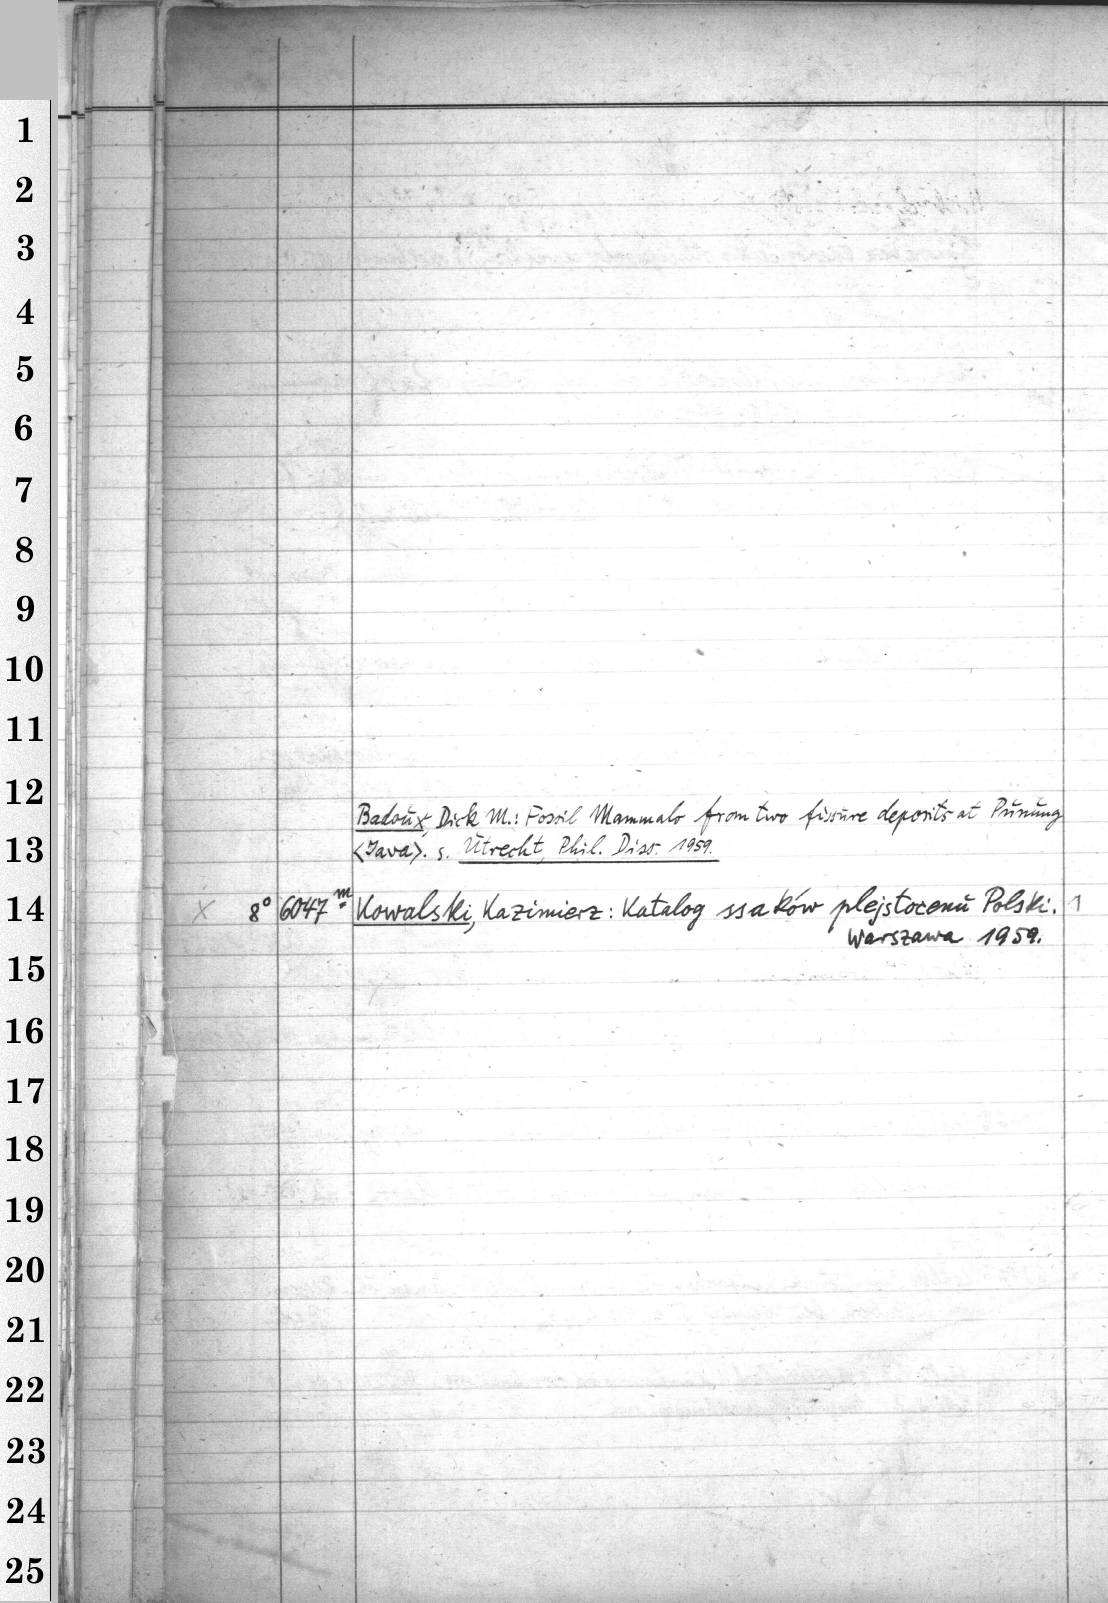 1
2
3
4
5
6
7
8
9
10
11
12
Badoux, Dick M.: Fossil Mammals from two fissure deposits at Punung
13
<Java>. s. Utrecht, Phil. Diss. 1959.
14
x 8° 6047 m Kowalski, Kazimierz: Katalog ssaków plejstocenu Polski. 1
Warszawa 1959.
15
16
17
18
19
20
21
22
23
24
25